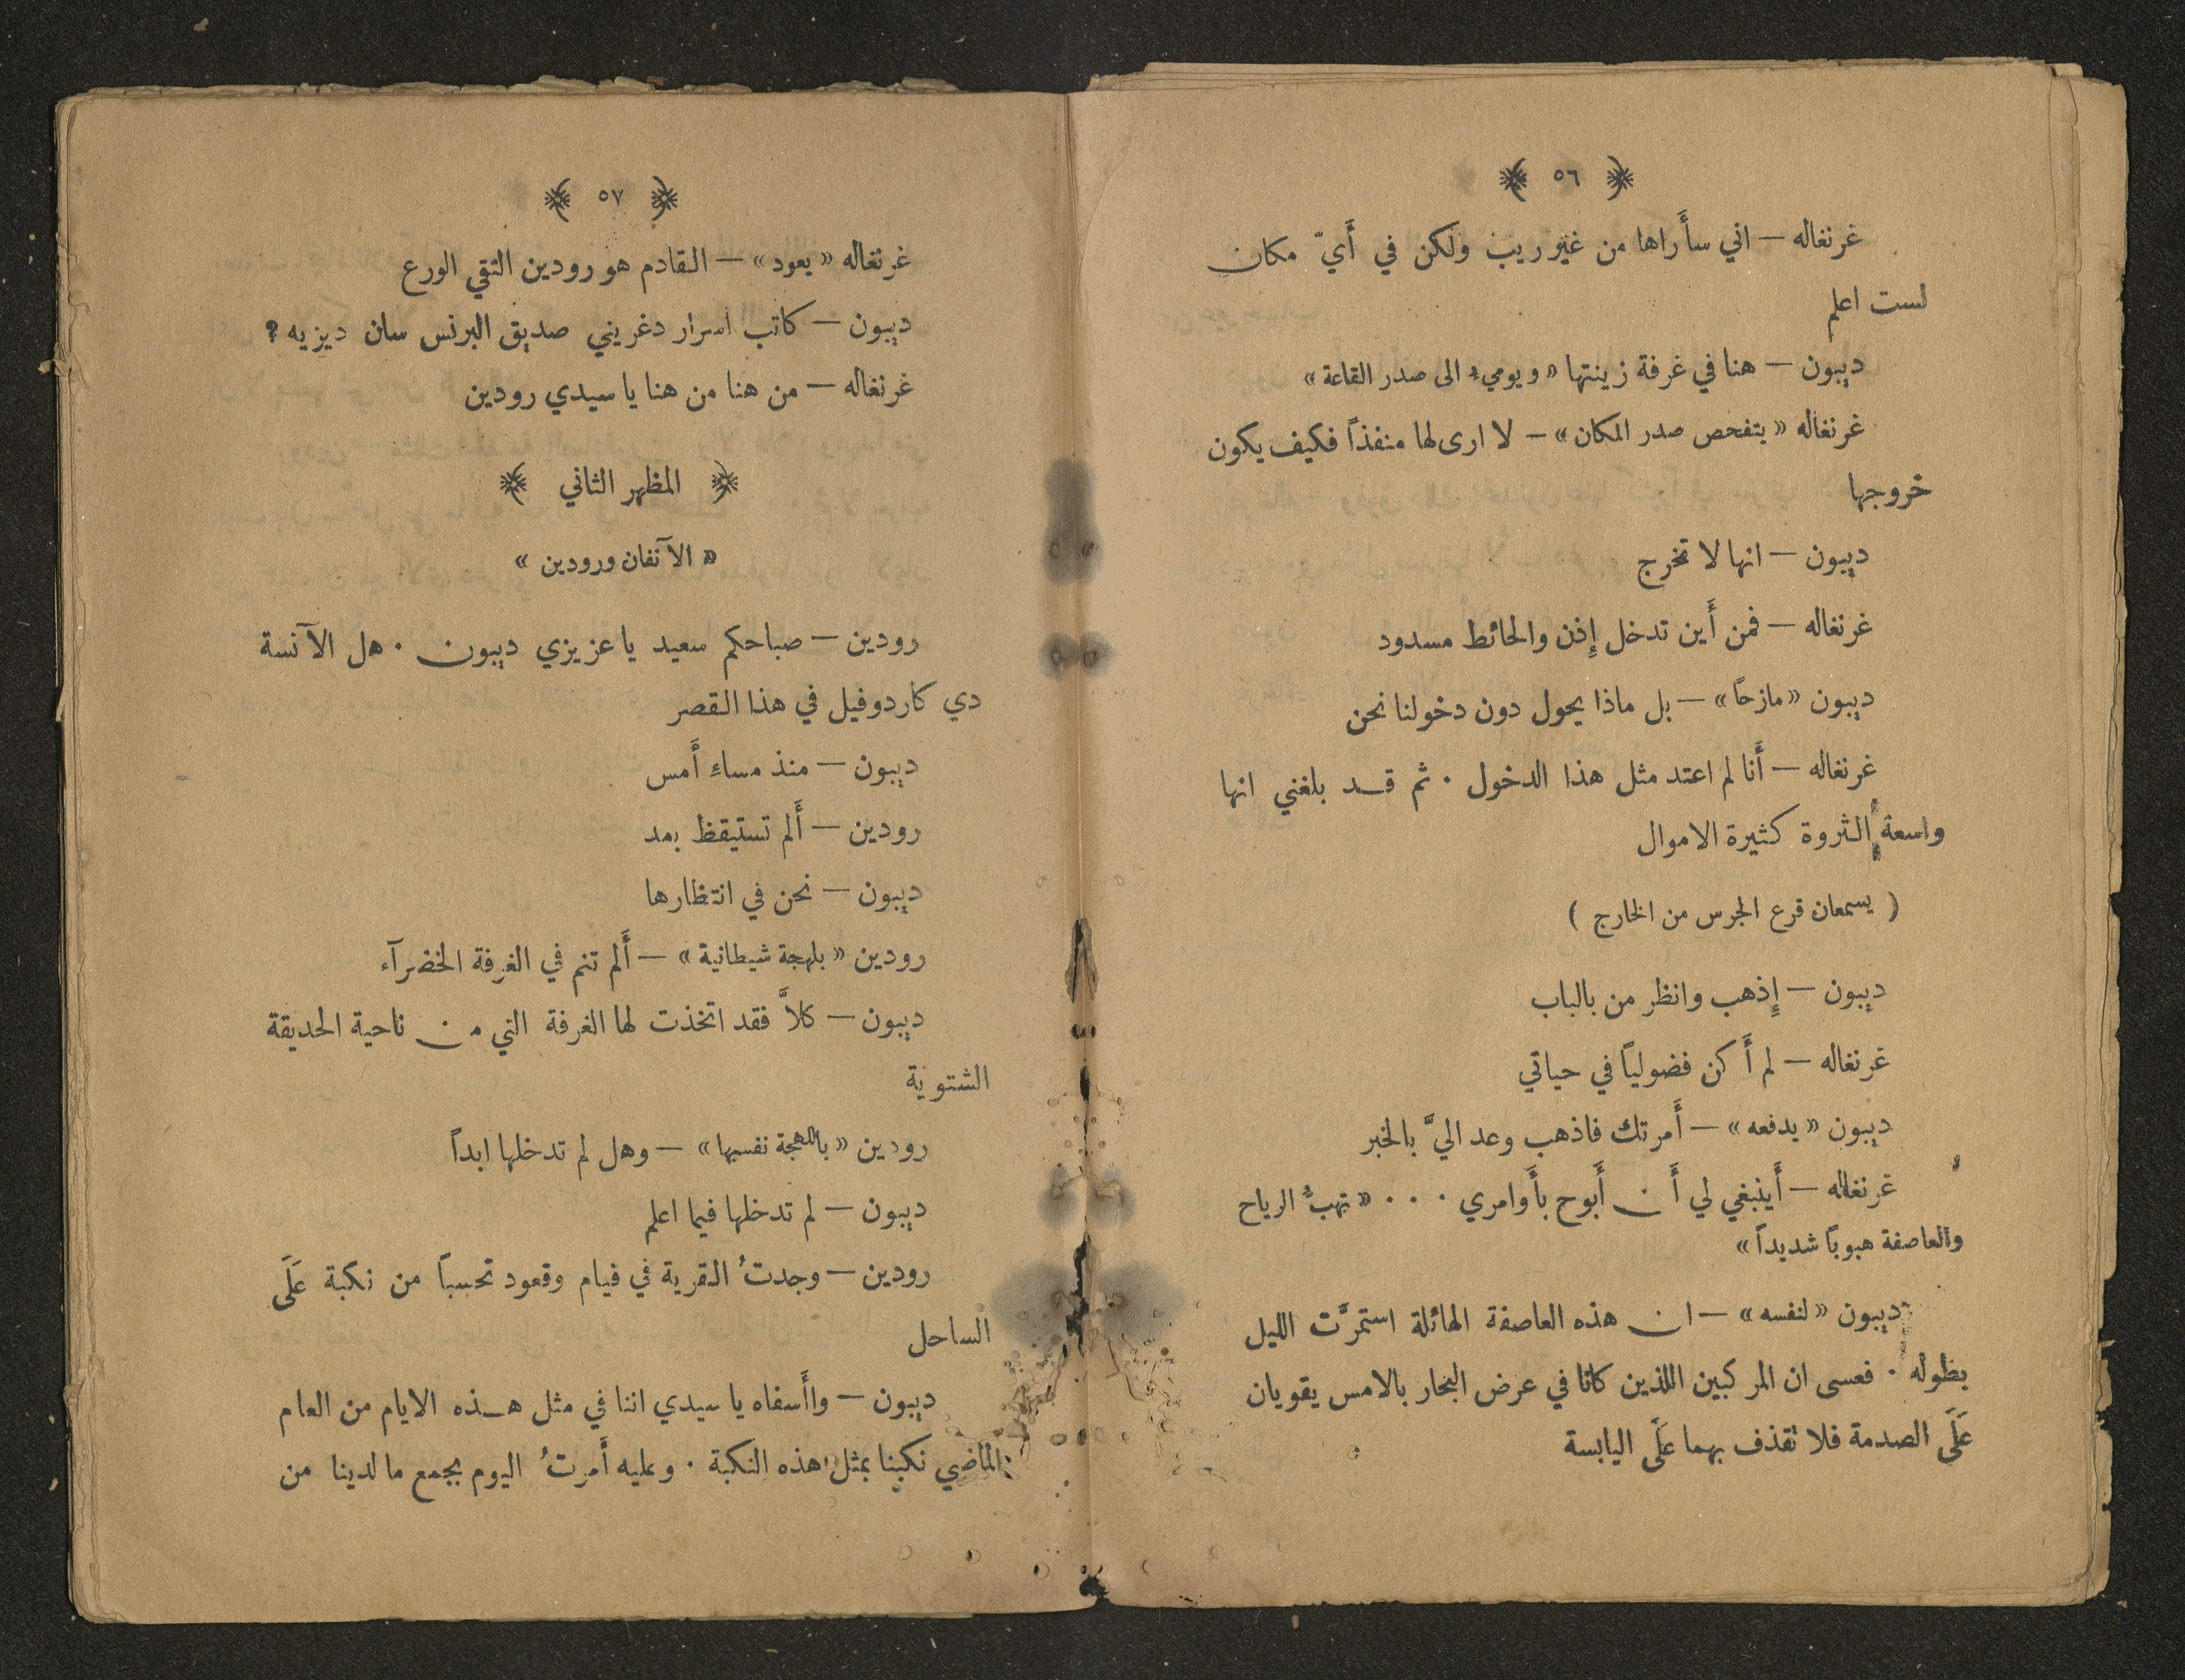 ﴿ ٥٦ ﴾
غرنغاله — اني سأَراها من غير ريب ولكن في أَيّ مكان
لست اعلم
ديبون — هنا في غرفة زينتها «ويوميء الى صدر القاعة»
غرنغاله «يتفحص صدر المكان» — لا ارى لها منفذاً فكيف يكون
خروجها
ديبون — انها لا تخرج
غرنغاله — فمن أَين تدخل إِذن والحائط مسدود
ديبون «مازحاً» — بل ماذا يحول دون دخولنا نحن
غرنغاله — أَنا لم اعتد مثل هذا الدخول . ثم قد بلغني انها
واسعة الثروة كثيرة الاموال
( يسمعان قرع الجرس من الخارج )
ديبون — إِذهب وانظر من بالباب
غرنغاله — لم أَكن فضولياً في حياتي
ديبون «يدفعه» — أَمرتك فاذهب وعد اليَّ بالخبر
غرنغاله — أَينبغي لي أَن أَبوح بأَوامري . . . «تهبُّ الرياح
والعاصفة هبوباً شديداً»
ديبون «لنفسه» — ان هذه العاصفة الهائلة استمرَّت الليل
بطوله . فعسى ان المركبين اللذين كانا في عرض البحار بالامس يقويان
عَلَى الصدمة فلا تقذف بهما عَلَى اليابسة
﴿ ٥٧ ﴾
غرنغاله «يعود» — القادم هو رودين التقي الورع
ديبون — كاتب اسرار دغريني صديق البرنس سان ديزيه ؟
غرنغاله — من هنا من هنا يا سيدي رودين
﴿ المظهر الثاني ﴾
« الآنفان ورودين »
رودين — صباحكم سعيد يا عزيزي ديبون . هل الآنسة
دي كاردوفيل في هذا القصر
ديبون — منذ مساء أَمس
رودين — أَلم تستيقظ بعد
ديبون — نحن في انتظارها
رودين «بلهجة شيطانية» — أَلم تنم في الغرفة الخضرآء
ديبون — كلاَّ فقد اتخذت لها الغرفة التي من ناحية الحديقة
الشتوية
رودين «باللهجة نفسها» — وهل لم تدخلها ابداً
ديبون — لم تدخلها فيما اعلم
رودين — وجدتُ القرية في قيام وقعود تحسباً من نكبة عَلَى
الساحل
ديبون — واأَسفاه يا سيدي اننا في مثل هذه الايام من العام
الماضي نكبنا بمثل هذه النكبة . وعليه أَمرتُ اليوم بجمع ما لدينا من